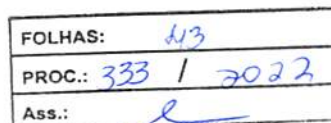 FOLHAS: 43
PROC.: 333 / 2022
Ass.: